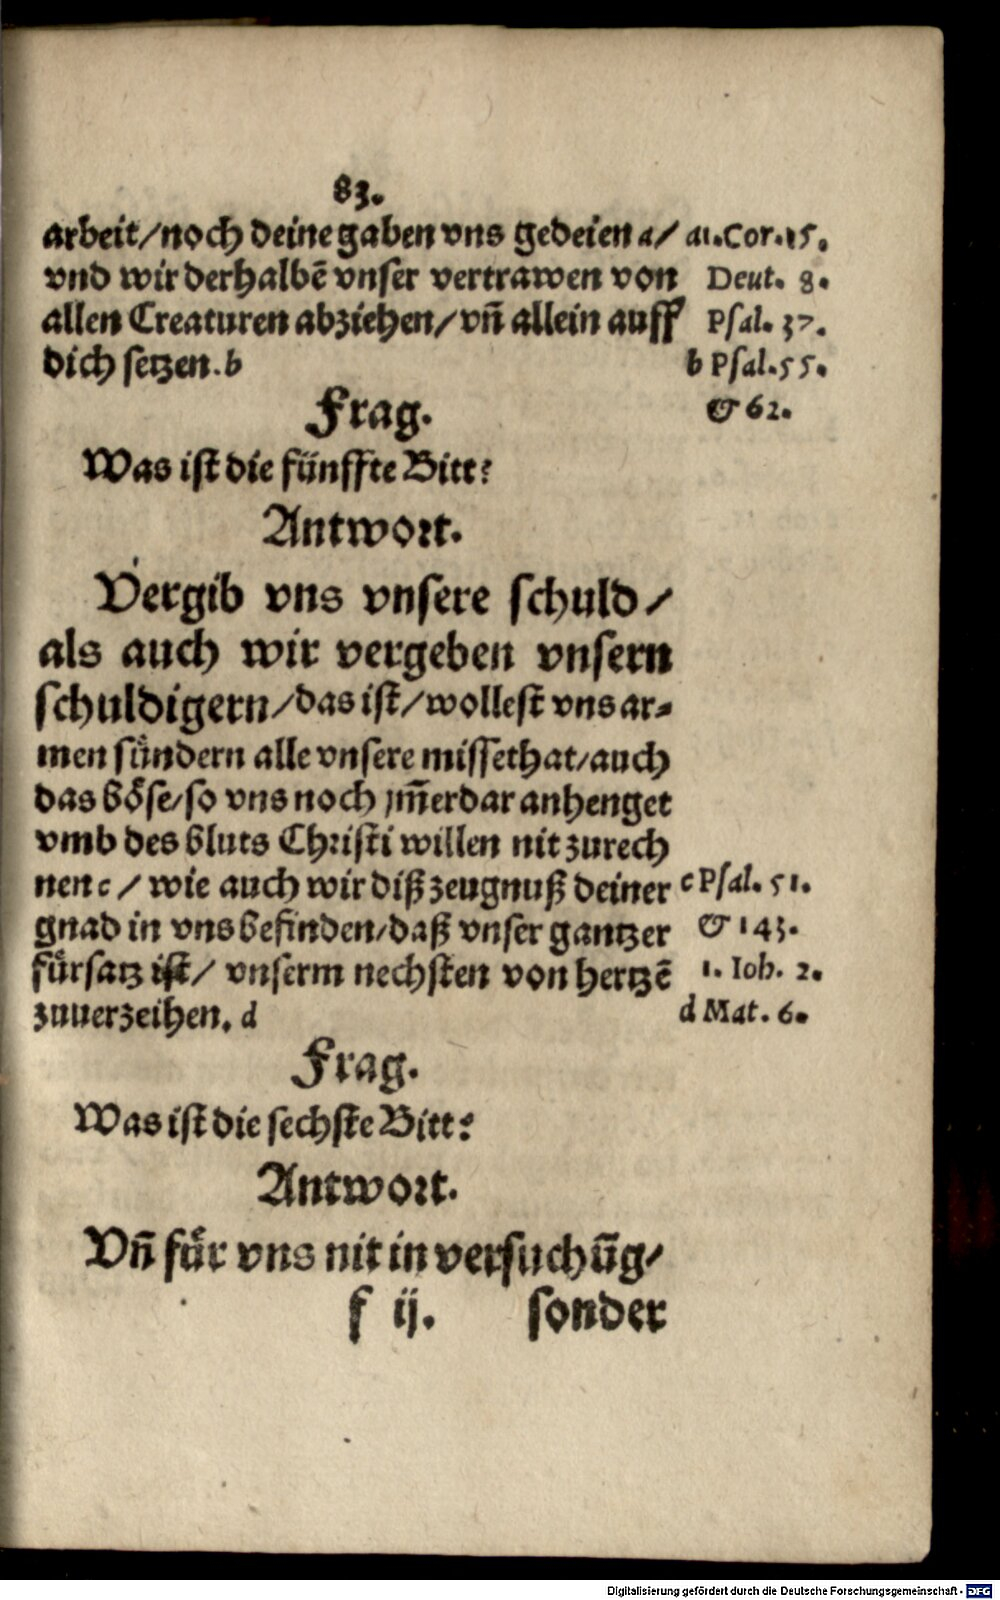 83.
arbeit/noch deine gaben vns gedeien a/ a 1.Cor.15.
vnd wir derhalbē vnser vertrawen von Deut. 8.
allen Creaturen abziehen/vñ allein auff Psal. 37.
dich setzen. b b Psal.55.
Frag. & 62.
Was ist die fünffte Bitt?
Antwort.
Vergib vns vnsere schuld/
als auch wir vergeben vnsern
schuldigern/das ist/wollest vns ar-
men sündern alle vnsere missethat/auch
das böse/so vns noch jm̄erdar anhenget
vmb des bluts Christi willen nit zurech
nen c/ wie auch wir diß zeugnuß deiner c Psal. 51.
gnad in vns befinden/daß vnser gantzer & 143.
fürsatz ist/ vnserm nechsten von hertzē 1. Ioh. 2.
zuuerzeihen. d d Mat. 6.
Frag.
Was ist die sechste Bitt?
Antwort.
Vñ für vns nit in versuchūg/
f ij. sonder
Digitalisierung gefördert durch die Deutsche Forschungsgemeinschaft - DFG